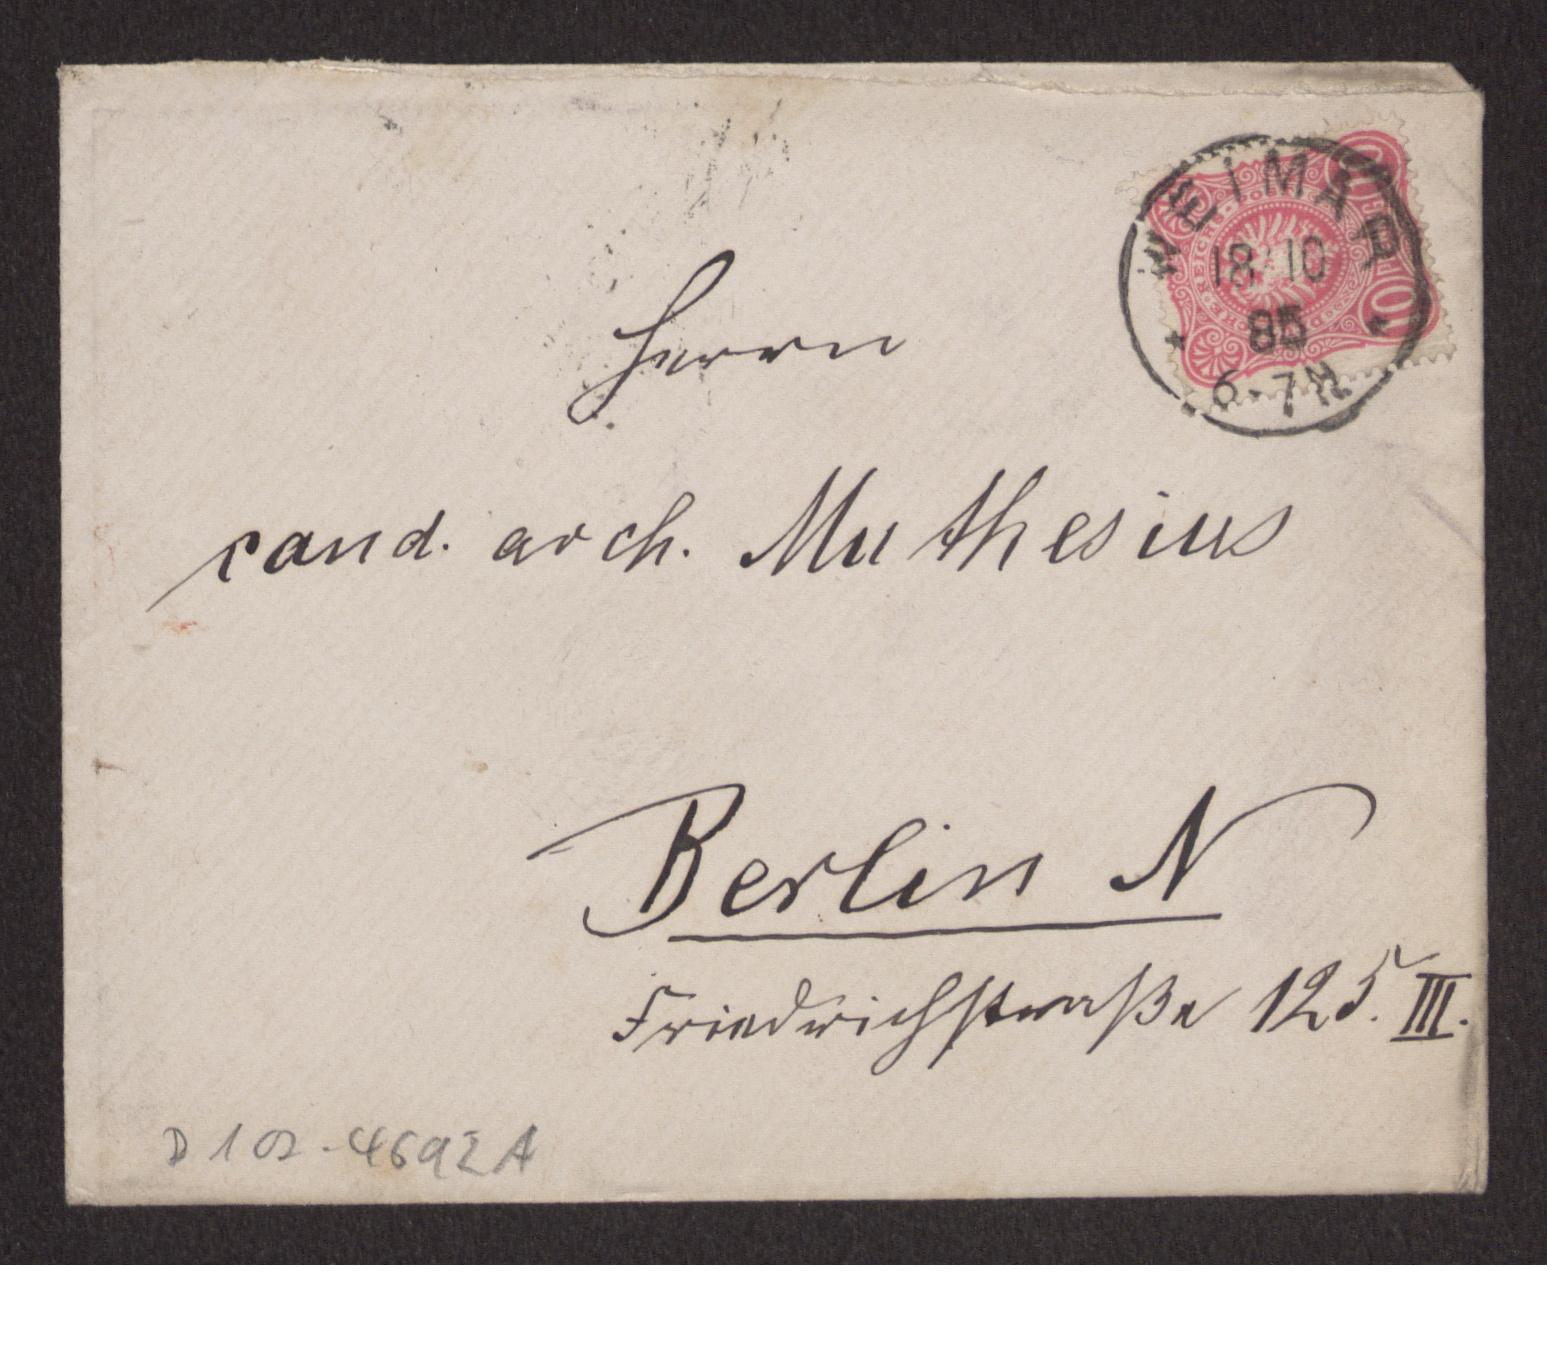 WEIMAR
18/10
85
6-7N
Herrn
cand. arch. Muthesius
Berlin N
Friedrichstraße 125. III.
D 102-4692A